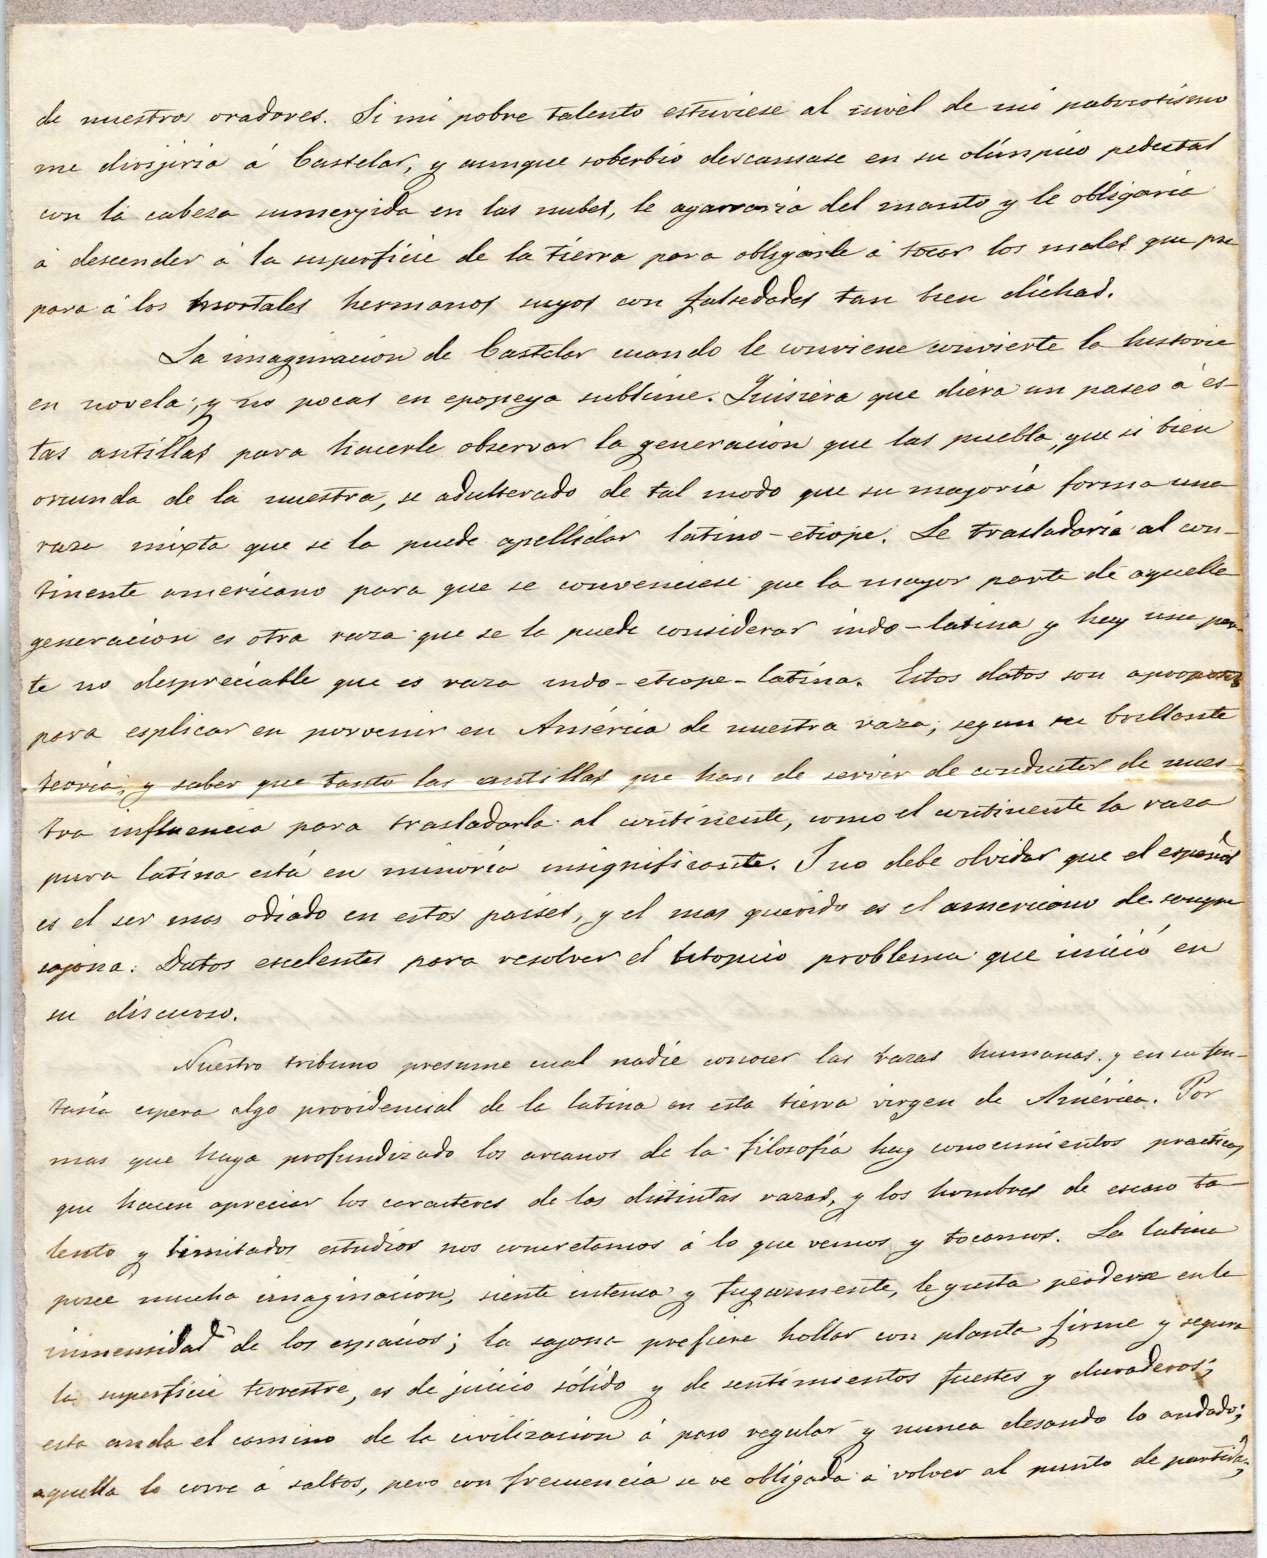 de nuestros oradores. Si mi pobre talento estuviese al nivel de mi patriotismo
me dirijiria á Castelar, y aunque soberbio descansase en su olímpico pedestal
con la cabeza sumerjida en las nubes, le agarraria del manto y le obligaria
á descender á la superficie de la tierra para obligarle á tocar los males que pre
para á los mortales hermanos suyos con falsedades tan bien dichas.
La imaginacion de Castelar cuando le conviene convierte la historia
en novela; y no pocas en epopeya sublime. Quisiera que diera un paseo á es-
tas antillas para hacerle observar la generacion que las puebla, que si bien
oriunda de la nuestra, se adulterado de tal modo que su mayoría forma una
raza mixta que se la puede apellidar latino-etiope. Le trasladaría al con-
tinente américano para que se convenciese que la mayor parte de aquella
generacion es otra raza que se la puede considerar indo-latina y hay una par-
te no despreciable que es raza indo-etiope-latina. Estos datos son aproposito
para esplicar en porvenir en América de nuestra raza, segun su brillante
teoría; y saber que tanto las antillas que han de servir de conductor de nues-
tra influencia para trasladarla al continente, como el continente la raza
pura latina está en minoría insignificante. I no debe olvidar que el español
es el ser mas odiado en estos paises, y el mas querido es el americano de sangre
sajona. Datos escelentes para resolver el utopico problema que inició en
su discurso.
Nuestro tribuno presume cual nadie conocer las razas humanas y en su fan-
tasía espera algo providencial de la latina en esta tierra virgen de América. Por
mas que haya profundizado los arcanos de la filosofía hay conocimientos practicos
que hacen apreciar los caracteres de las distintas razas, y los hombres de escaso ta-
lento y limitados estudios nos concretamos á lo que vemos y tocamos. La latina
posee mucha imaginacion, siente intensa y fugazmente, le gusta perderse en la
inmensidad de los espacios; la sajona prefiere hollar con planta firme y segura
la superficie terrestre, es de juicio sólido y de sentimientos fuertes y duraderos;
esta anda el camino de la civilizacion á paso regular y nunca desanda lo andado;
aquella lo corre á saltos, pero con frecuencia se ve obligada á volver al punto de partida;